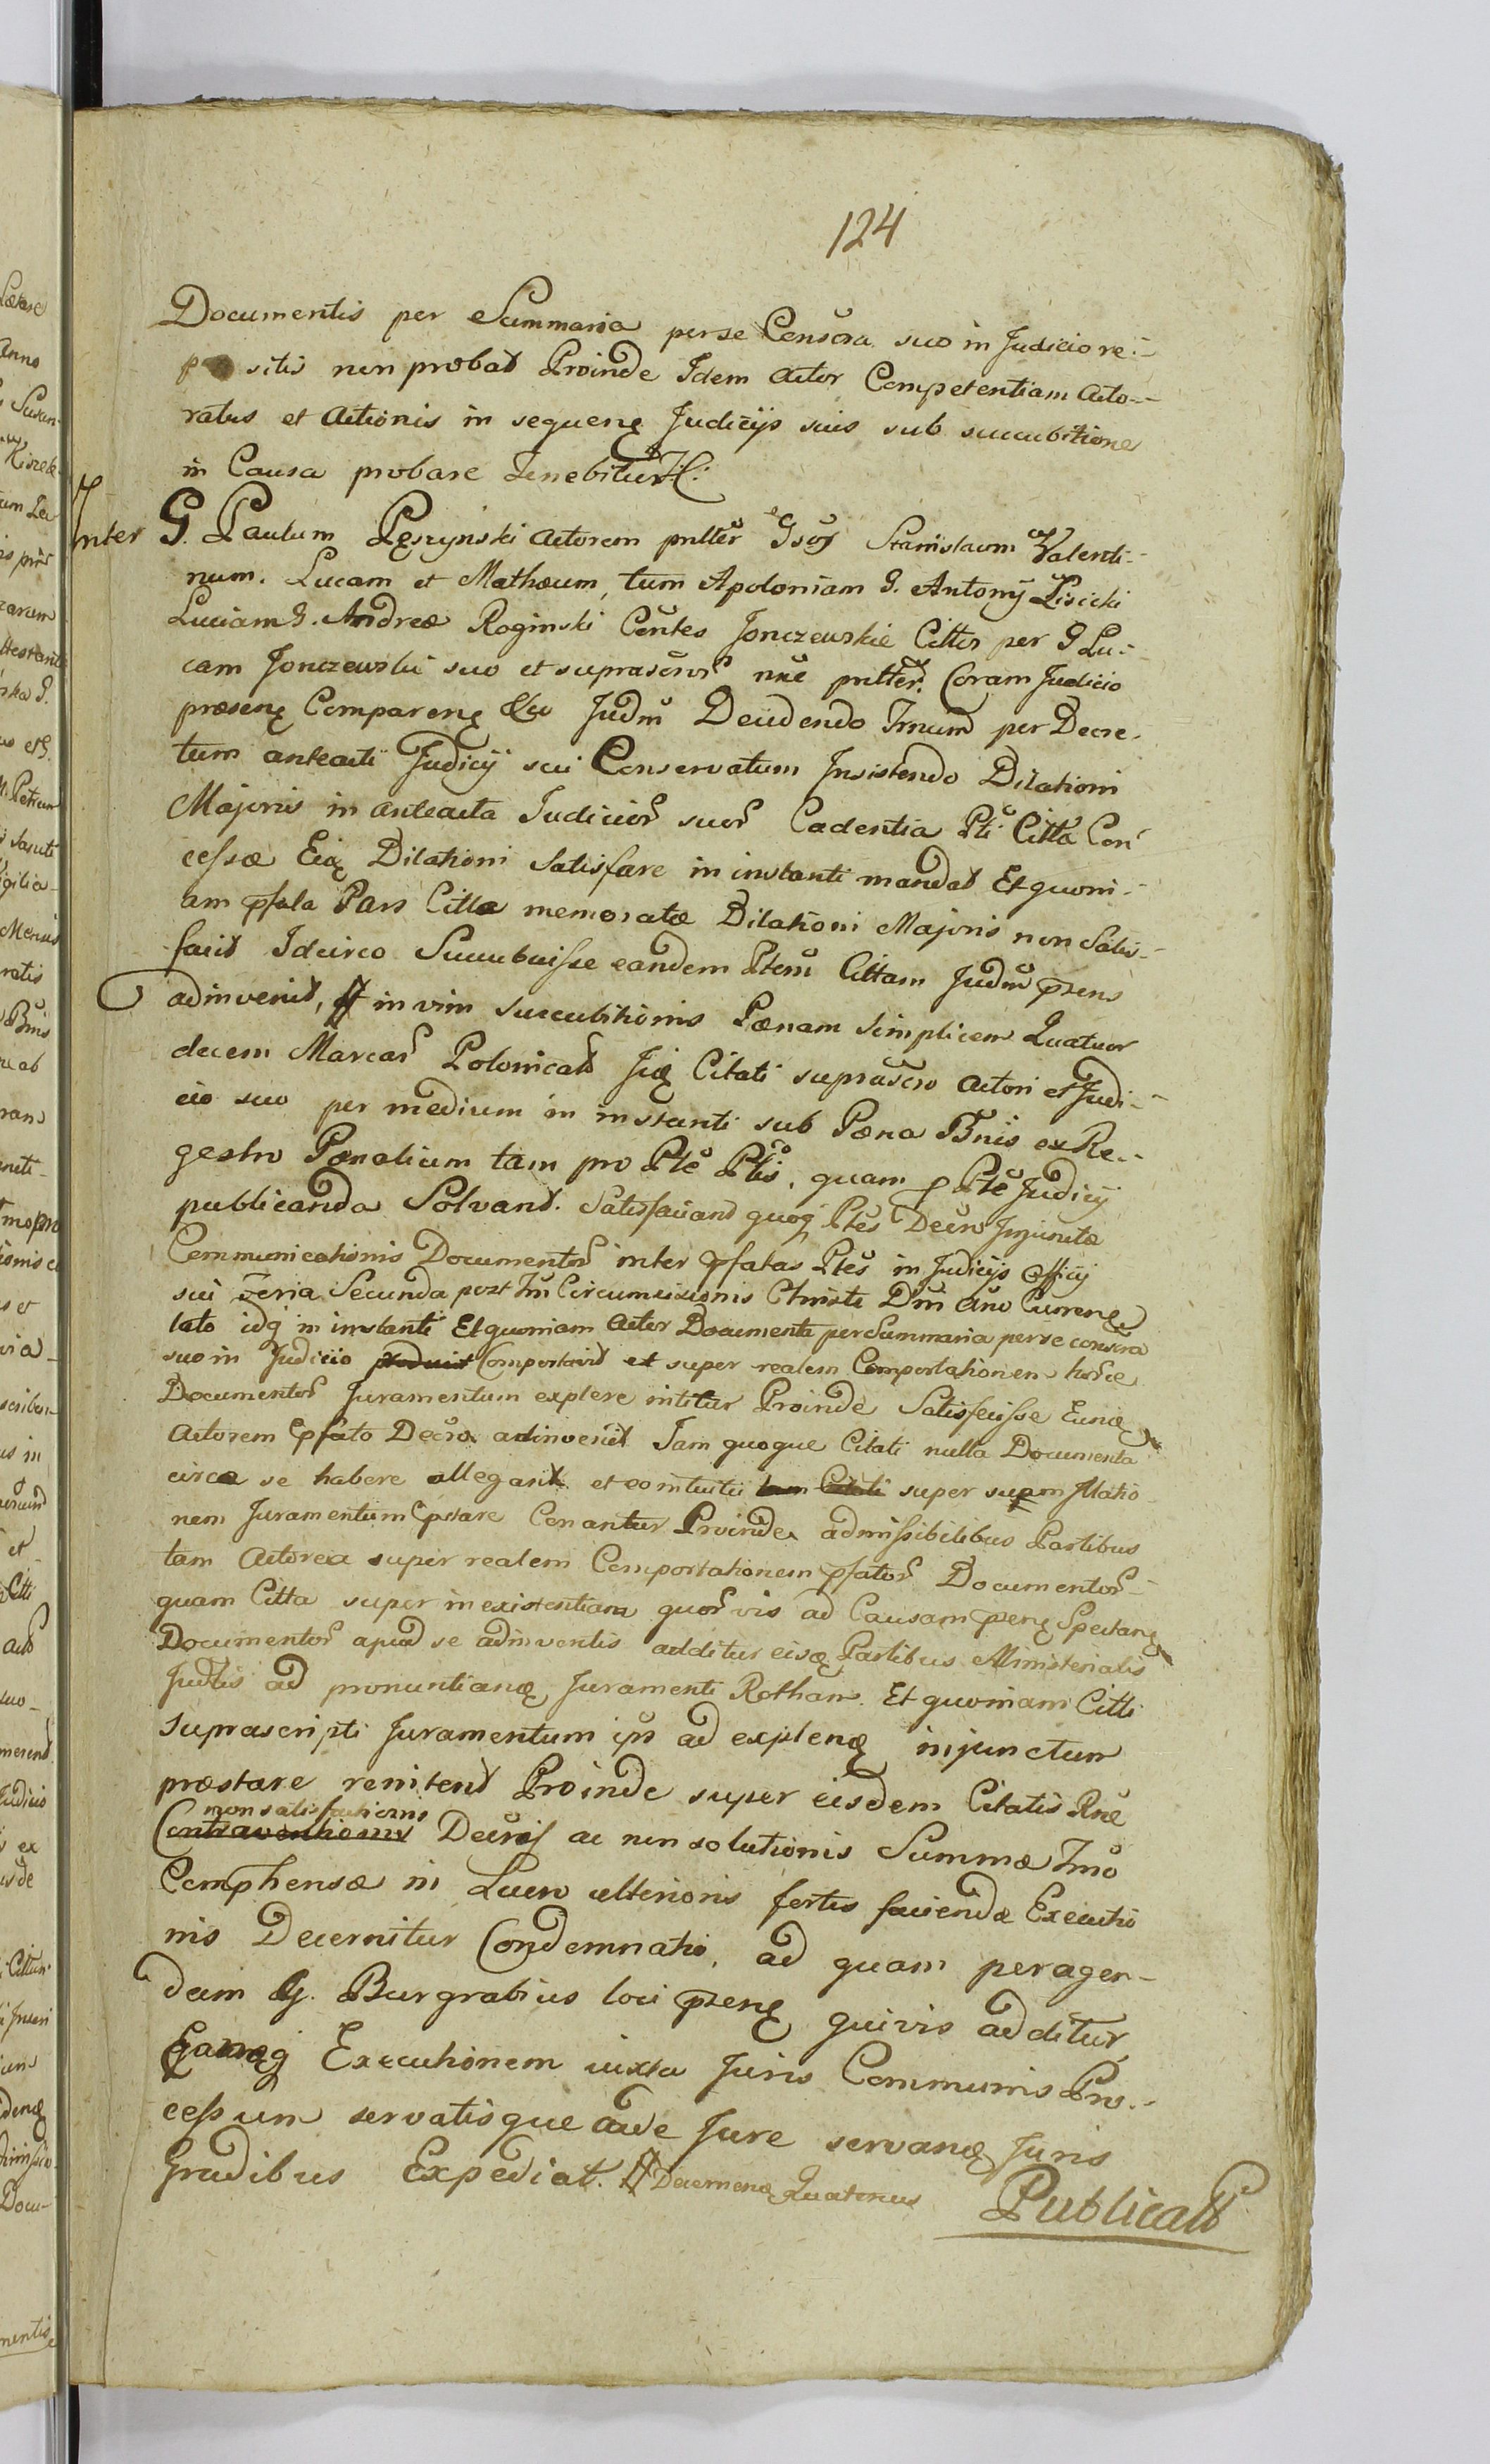 124
Documentis per Summaria perse Censōra suo in Judicio re:
positis non probat Proinde Idem Actor Competentiam Acto-
ratus et Actionis in sequenę Judicijs suis sub succubitione
in Causa probare tenebitur
Inter G. Paulum Pęszynski Actorem pnlter Gsos Stanislaum Valenti-
num. Lucam et Mathæum, tum Apoloniam G. Antonij Lisicki
Luciam G. Andreæ Roginski Contes Jonczewskie Citter per G Lu:
cam Jonczewski suo et suprascror nne pnlter. Coram Judicio
præsenę Comparenę Judm Deūdendo Trnum per Decre-
tum anteacti Judicij sui Conservatum Insistendo Dilationi
Majoris in anteacta Judicior suor Cadentia Pti Citta Con
cessæ Eię Dilationi Satisfare in instanti mandat Et quoni-
am pfata Pars Citta memoratæ Dilationi Majoris non Satis-
facit Idcirco Succubuisse eandem Ptem Cittam Judm pzens
adinvenit, in vim succubitionis Pænam simplicem Quatuor
decem Marcas Polonicat Iię Citati suprascro Actori et Judi-
cio suo per medium in instanti sub Pæna Bnis ex Re-
gestro Pænalium tam pro Pte Ptis, quam p Pte Judicij
publicanda Solvant. Satisfaciant quoq Ptes Decro Injunctæ
Communicationis Documentor inter pfatas Ptes in Judicijs Officij
sui Feria Secunda post Fm Circumcisionis Christi Dm Ano Currenę
lato idq in instanti Et quoniam Actor Documenta per Summaria perse consera
suo in Judicio produxit Comportavit et super realem Comportationem horce
Documentor Juramentum explere nititur Proinde Satisfecisse Eunę
Actorem pfato Decro adinvenit Iam quoque Citati nulla Documenta
circa se habere allegant et eo intuitu tam Citati super supm Illatio
nem Juramentum pstare Conantur Proinde admissibilibus Partibus
tam Actorea super realem Comportationem pfator Documentor
quam Citta super inexistentiam quorvis ad Causam pzenę Spectanę
Documentor apud se adinventis additur eisę Partibus Ministerialis
Judtis ad pronuntianę Juramenti Rotham. Et quoniam Citti
suprascripti Juramentum ips ad explenę injunctum
præstare renitent Proinde super eisdem Citatis Rne
non satisfactionis
Contraventionis Decrois ac non solutionis Summæ Fmo
Comphensæ in Lucro ulterioris fortis faciendæ Executio
nis Decernitur Condemnatio, ad quam peragen-
dam G. Burgrabius loci pzenę quivis additur,
Eamęq Executionem iuxta Juris Communis Pro-
cessum servatisque de Jure servanę Juris
Gradibus Expediat. Decernenę Quatenus
Publicatt